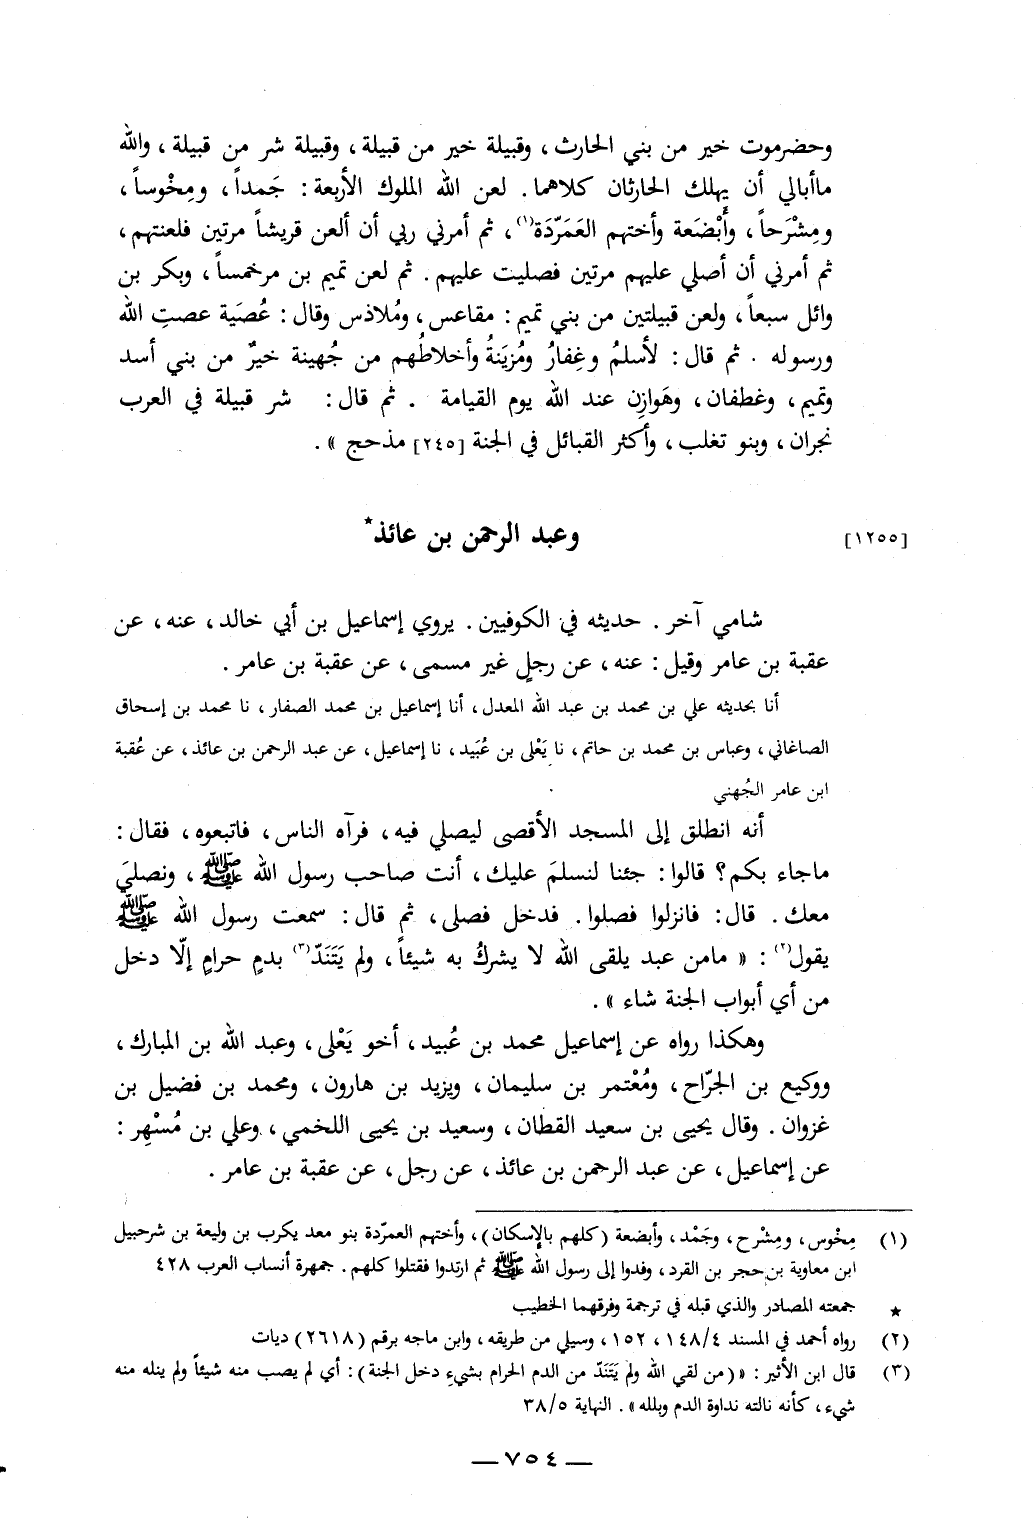 وحضرموت خير من بني الحارث ، وقبيلة خير من قبيلة ، وقبيلة شر من قبيلة ، والله
ماأبالي أن يهلك الحارثان كلاهما . لعن الله الملوك الأربعة : جَمداً ، ومِخْوساً ،
ومِشْرَحاً ، وأَبْضَعة وأختهم العَمَرّدَة(١) ، ثم أمرني ربي أن ألعن قريشاً مرتين فلعنتهم ،
ثم أمرني أن أصلي عليهم مرتين فصليت عليهم . ثم لعن تميم بن مرخمساً ، وبكر بن
وائل سبعاً ، ولعن قبيلتين من بني تميم : مقاعس ، ومُلاذس وقال : عُصَية عصتِ الله
ورسوله . ثم قال : لأسلمُ وغِفارُ ومُزيَنةُ وأخلاطُهم من جُهينة خيرٌ من بني أسد
وتميم ، وغطفان ، وهَوازِن عند الله يوم القيامة . ثم قال : شر قبيلة في العرب
نجران ، وبنو تغلب ، وأكثر القبائل في الجنة [٢٤٥] مذحج » .
[١٢٥٥] وعبد الرحمن بن عائذ*
شامي آخر . حديثه في الكوفيين . يروي إسماعيل بن أبي خالد ، عنه ، عن
عقبة بن عامر وقيل : عنه ، عن رجلٍ غير مسمى ، عن عقبة بن عامر .
أنا بحديثه علي بن محمد بن عبد الله المعدل ، أنا إسماعيل بن محمد الصفار ، نا محمد بن إسحاق
الصاغاني ، وعباس بن محمد بن حاتم ، نا يَعْلى بن عُبَيد ، نا إسماعيل ، عن عبد الرحمن بن عائذ ، عن عُقبة
ابن عامر الجُهني
أنه انطلق إلى المسجد الأقصى ليصلي فيه ، فرآه الناس ، فاتبعوه ، فقال :
ماجاء بكم ؟ قالوا : جئنا لنسلمَ عليك ، أنت صاحب رسول الله ﷺ ، ونصليَ
معك . قال : فانزلوا فصلوا . فدخل فصلى ، ثم قال : سمعت رسول الله ﷺ
يقول(٢) : « مامن عبد يلقى الله لا يشركُ به شيئاً ، ولم يَتَندّ(٣) بدمٍ حرامٍ إلّا دخل
من أي أبواب الجنة شاء » .
وهكذا رواه عن إسماعيل محمد بن عُبيد ، أخو يَعْلى ، وعبد الله بن المبارك ،
ووكيع بن الجرّاح ، ومُعْتمر بن سليمان ، ويزيد بن هارون ، ومحمد بن فضيل بن
غزوان . وقال يحيى بن سعيد القطان ، وسعيد بن يحيى اللخمي ، وعلي بن مُسْهِر :
عن إسماعيل ، عن عبد الرحمن بن عائذ ، عن رجل ، عن عقبة بن عامر .
(١) مِخْوس ، ومِشْرح ، وجَمْد ، وأبضعة (كلهم بالإسكان) ، وأختهم العمرّدة بنو معد يكرب بن وليعة بن شرحبيل
ابن معاوية بن حجر بن القرد ، وفدوا إلى رسول الله ﷺ ثم ارتدوا فقتلوا كلهم . جمهرة أنساب العرب ٤٢٨
* جمعته المصادر والذي قبله في ترجمة وفرقهما الخطيب
(٢) رواه أحمد في المسند ١٤٨/٤ ، ١٥٢ ، وسيلي من طريقه ، وابن ماجه برقم (٢٦١٨) ديات
(٣) قال ابن الأثير : « (من لقي الله ولم يَتَندّ من الدم الحرام بشيء دخل الجنة) : أي لم يصب منه شيئاً ولم ينله منه
شيء ، كأنه نالته نداوة الدم وبلله » . النهاية ٣٨/٥
— ٧٥٤ —